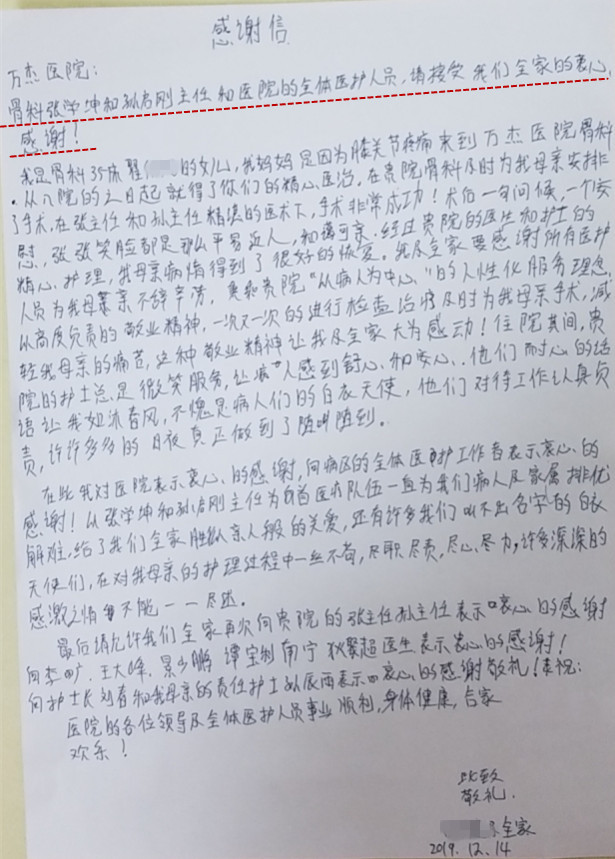 感谢信
万杰医院:
骨科张学坤和孙启刚主任和医院的全体医护人员,请接受我们全家的衷心
感谢!
我是骨科35床翟 的女儿,我妈妈是因为膝关节疼痛来到万杰医院骨科
.从入院的之日起就得了你们的精心医治,在贵院骨科及时为我母亲安排
了手术,在张主任和孙主任精湛的医术下,手术非常成功!术后一句问候,一个安
慰,张张笑脸都是那么平易近人,和蔼可亲.经过贵院的医生和护士的
精心护理,我母亲病情得到了很好的恢复。我及全家要感谢所有医护
人员为我母亲不辞辛劳,贵院"以病人为中心"的人性化服务理念
以高度负责的敬业精神,一次又一次的进行检查治疗及时为我母亲手术,减
轻我母亲的痛苦,这种敬业精神让我及全家大为感动!住院其间,贵
院的护士总是微笑服务,让病人感到舒心、和安心、..他们耐心的话
语让我如沐春风,不愧是病人们的白衣天使,他们对待工作认真负
责,许许多多的日夜真正做到了随叫随到.
在此我对医院表示衷心的感谢,向病区的全体医护工作者表示衷心的
感谢!以张学坤和孙启刚主任为首医疗队伍一直为我们病人及家属排忧
解难,给了我们全家胜似亲人般的关爱,还有许多我们叫不出名字的白衣
天使们,在对我母亲的护理过程中一丝不苟,尽职尽责,尽心尽力,许多深深的
感激之情不能一一尽述.
最后请允许我们全家再次向贵院的张主任孙主任表示衷心的感谢
向李旷.王大峰.景少鹏 谭宝利 南宁 狄繁超医生表示衷心的感谢!
向护士长刘春和我母亲的责任护士孙辰雨表示衷心的感谢敬礼!恭祝:
医院的各位领导及全体医护人员事业顺利,身体健康,合家
欢乐!
此致
敬礼.
全家
2019.12.14